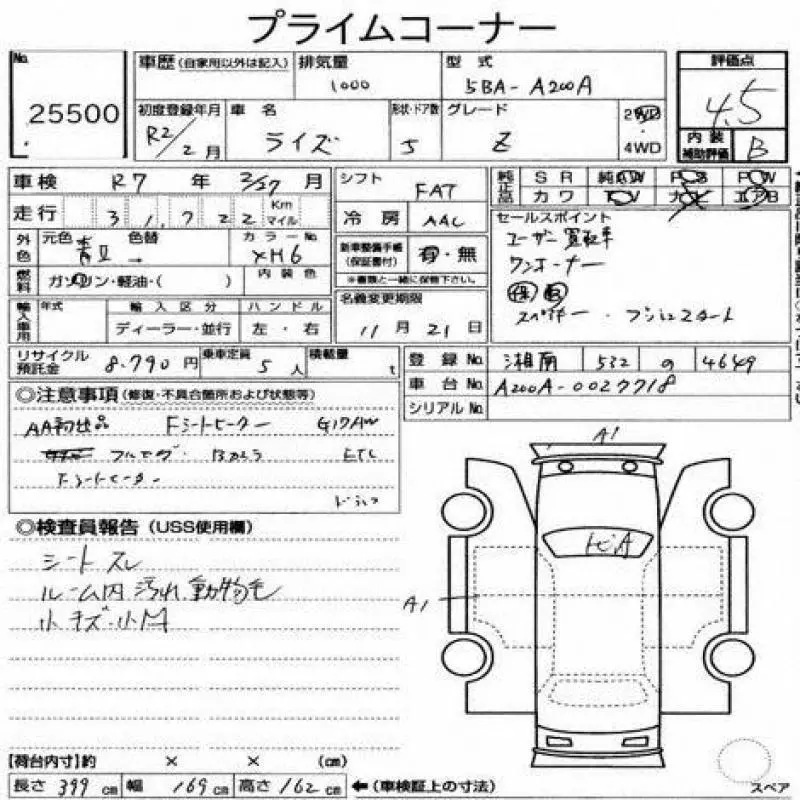 プライムコーナー
No. 25500
車歴(自家用以外は記入) 排気量 1000 型式 5BA-A200A 評価点 4.5
初度登録年月 R2/2月 車名 ライズ 形状・ドア数 5 グレード Z 2WD 4WD 内装補助評価 B
車検 R7年 2/27月 シフト FAT 純正品 SR 純正AW PS PW
走行 31,722 Km マイル 冷房 AAC カワ TV ナビ エアB
外色 元色 青II 色替 → カラーNo. XH6 新車整備手帳(保証書付) 有・無 ※書類と一緒に保管下さい。
セールスポイント
ユーザー買取車
ワンオーナー
燃料 ガソリン・軽油・( ) 内装色
輸入車用 年式 輸入区分 ディーラー・並行 ハンドル 左・右 名義変更期限 11月21日
スペアキー・プッシュスタート
リサイクル預託金 8,790円 乗車定員 5人 積載量 t 登録No. 湘南 532 の 4649
車台No. A200A-0027718
シリアルNo.
◎注意事項(修復・不具合箇所および状態等)
AA初出品 Fシートヒーター G17AW
フルセグ・Bカメラ ETC
Fシートヒーター
ドラレコ
◎検査員報告(USS使用欄)
シートスレ
ルーム内汚れ、動物毛
小キズ・小凹
A1
A1
【荷台内寸】約 × × (cm)
長さ 399 cm 幅 169 cm 高さ 162 cm ←(車検証上の寸法)
スペア